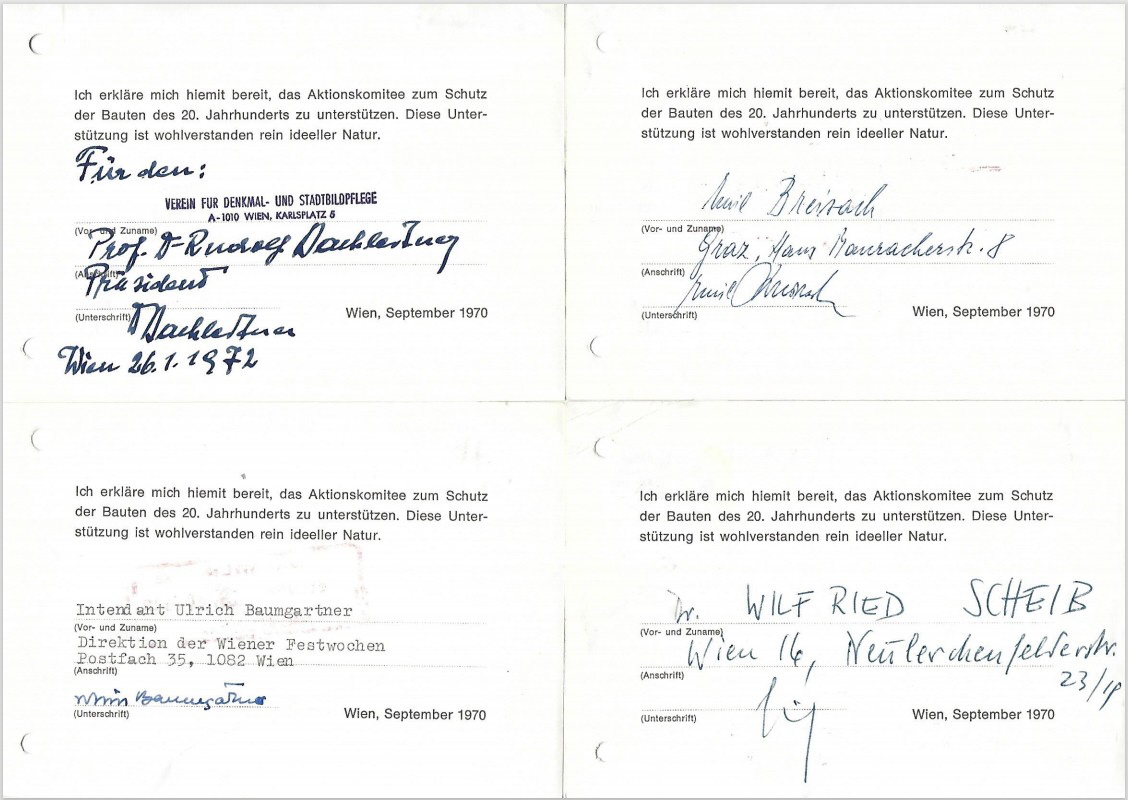 Ich erkläre mich hiemit bereit, das Aktionskomitee zum Schutz
der Bauten des 20. Jahrhunderts zu unterstützen. Diese Unter-
stützung ist wohlverstanden rein ideeller Natur.
Für den:
VEREIN FÜR DENKMAL- UND STADTBILDPFLEGE
A-1010 WIEN, KARLSPLATZ 5
(Vor- und Zuname)
Prof. Dr Rudolf Dachleitner
(Anschrift)
Präsident
(Unterschrift)
Dachleitner
Wien, September 1970
Wien 26.1.1972
Ich erkläre mich hiemit bereit, das Aktionskomitee zum Schutz
der Bauten des 20. Jahrhunderts zu unterstützen. Diese Unter-
stützung ist wohlverstanden rein ideeller Natur.
Emil Breisach
(Vor- und Zuname)
Graz, Hans 8
(Anschrift)
Emil Breisach
(Unterschrift)
Wien, September 1970
Ich erkläre mich hiemit bereit, das Aktionskomitee zum Schutz
der Bauten des 20. Jahrhunderts zu unterstützen. Diese Unter-
stützung ist wohlverstanden rein ideeller Natur.
Intendant Ulrich Baumgartner
(Vor- und Zuname)
Direktion der Wiener Festwochen
Postfach 35, 1082 Wien
(Anschrift)
Ulrich Baumgartner
(Unterschrift)
Wien, September 1970
Ich erkläre mich hiemit bereit, das Aktionskomitee zum Schutz
der Bauten des 20. Jahrhunderts zu unterstützen. Diese Unter-
stützung ist wohlverstanden rein ideeller Natur.
Dr. WILFRIED SCHEIB
(Vor- und Zuname)
Wien 16, Neulerchenfelderstr.
(Anschrift)
23/19
(Unterschrift)
Wien, September 1970